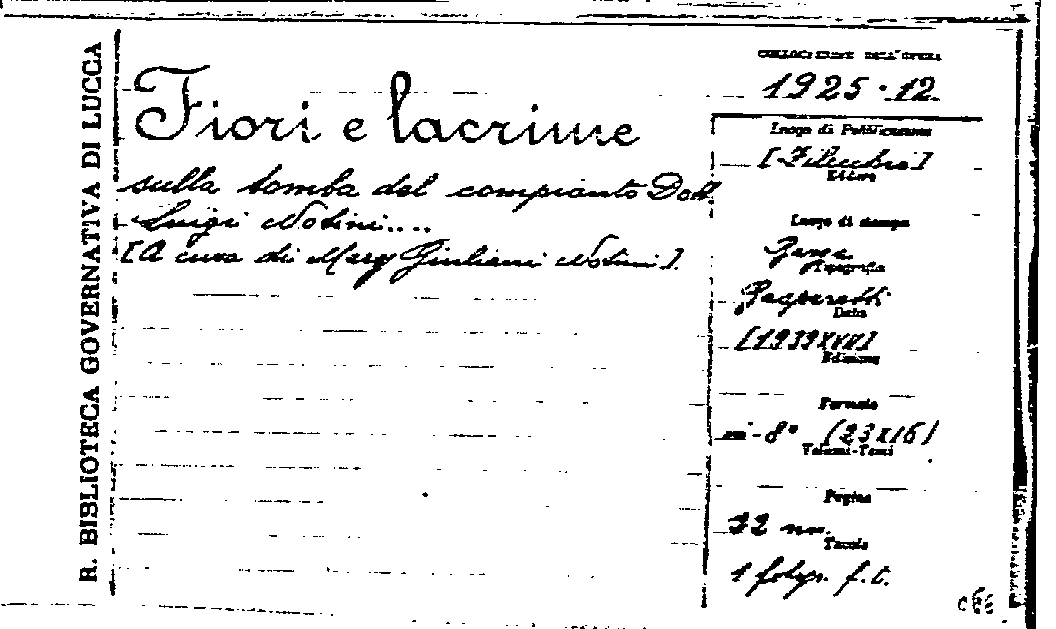 R. BIBLIOTECA GOVERNATIVA DI LUCCA
Fiori e lacrime
sulla tomba del compianto Dott.
Luigi Notini....
[A cura di Mary Giuliani Notini].
COLLOCAZIONE DELL'OPERA
1925.12.
Luogo di Pubblicazione
Editore
Luogo di stampa
Tipografia
Data
[1939 XVII]
Edizione
Formato
in-8° (23x16)
Volumi-Tomi
Pagine
32 nn.
Tavole
1 fotogr. f.t.